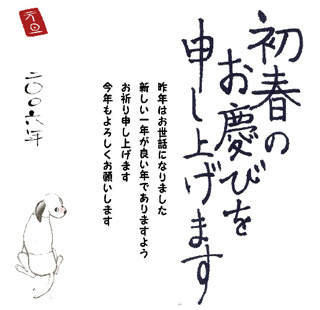 初春の
お慶びを
申し上げます
昨年はお世話になりました
新しい一年が良い年でありますよう
お祈り申し上げます
今年もよろしくお願いします
元旦
二〇〇六年